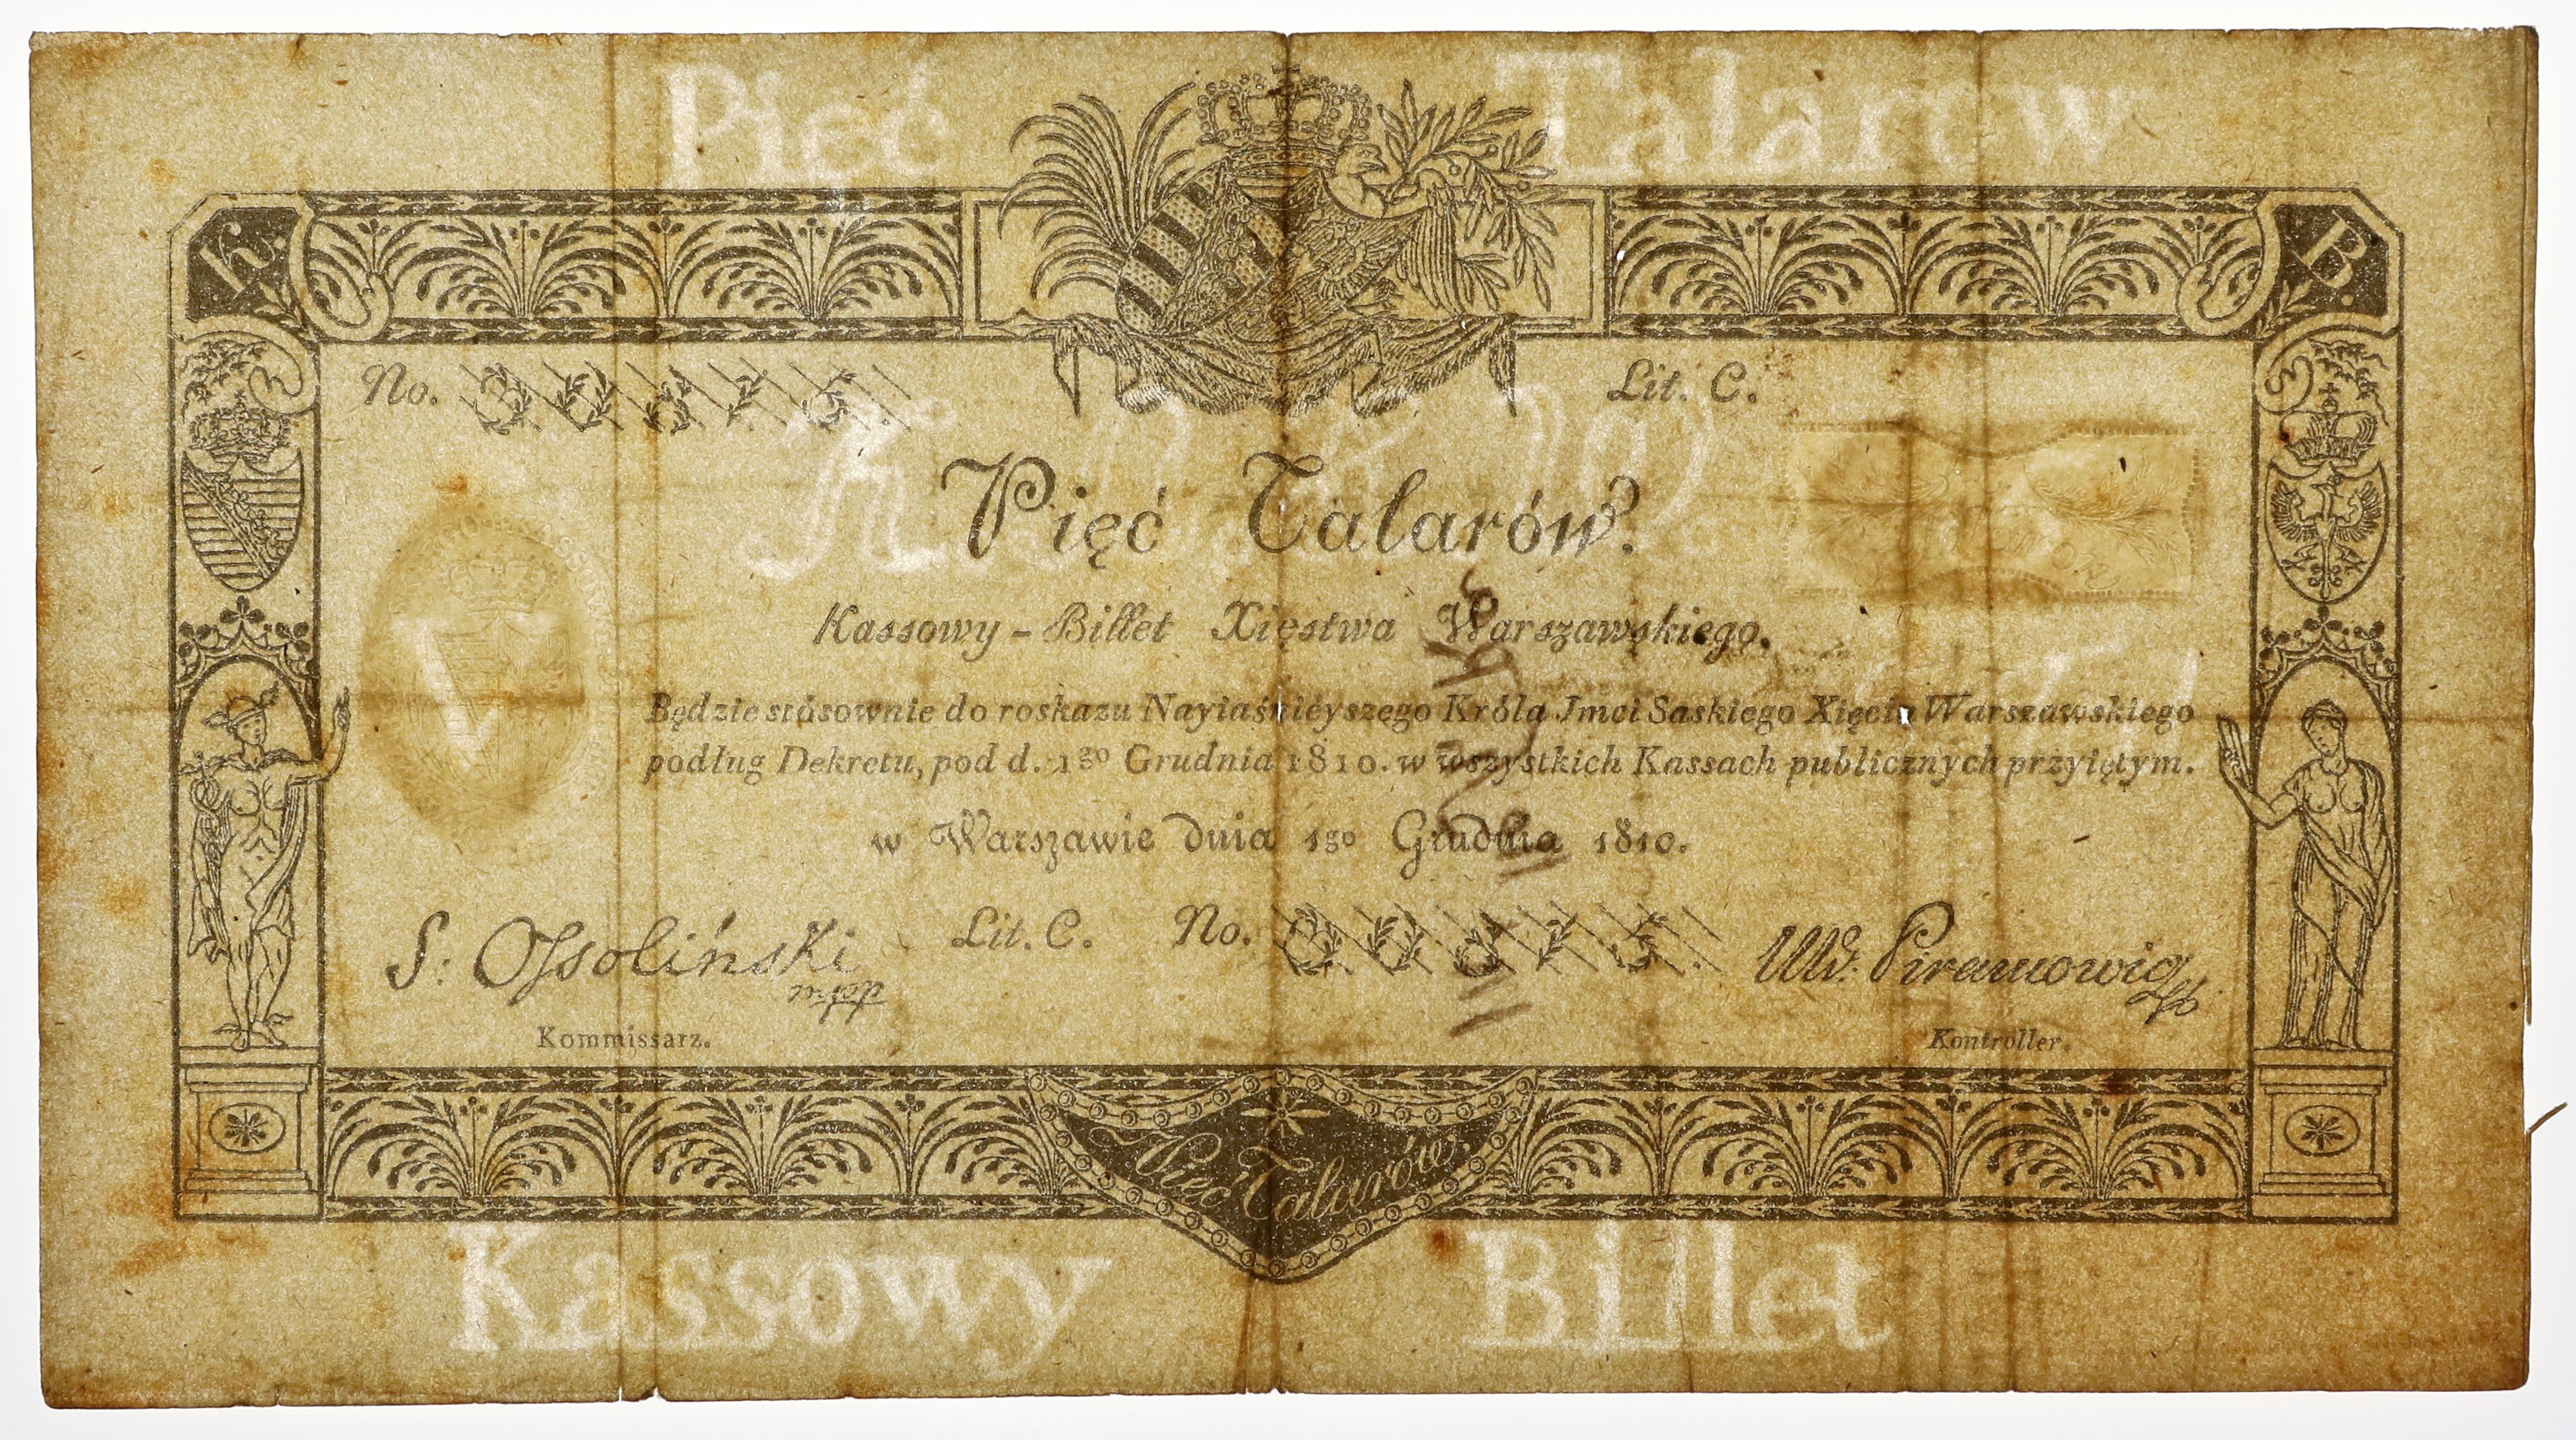 Pięć Talarów
K. B.
No. Lit. C.
Pięć Talarów.
Kassowy - Billet Xięstwa Warszawskiego.
Będzie stósownie do roskazu Nayiaśnieyszego Króla Jmci Saskiego Xięcia Warszawskiego
podług Dekretu, pod d. 1go Grudnia 1810. w wszystkich Kassach publicznych przyiętym.
w Warszawie dnia 1go Grudnia 1810.
S: Ossoliński Lit. C. No. Wd. Piramowicz
Kommissarz. Kontroller.
Pięć Talarów.
Kassowy Billet